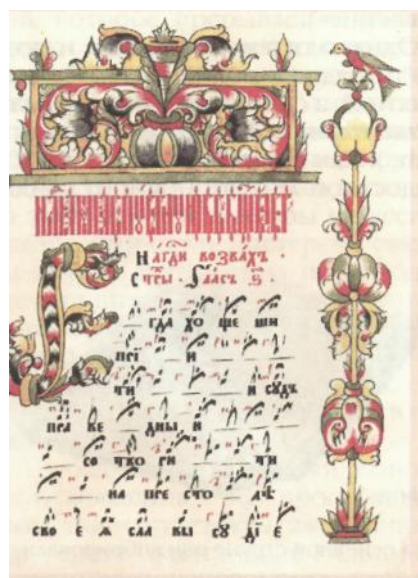 На гд҃и возва́хъ ·
Стх҃ры · Гласъ ѕ҃ ·
Е гда хо ще ши
прїи и
ти и судъ
пра ве дны и
со тво ри ти
на пре сто лѣ
сво е ѧ сла вы су дї е